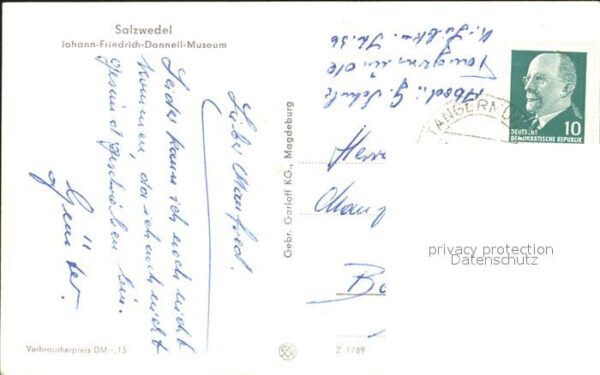 Salzwedel
Johann-Friedrich-Danneil-Museum
Lieber Manfred.
Leider kann ich noch nicht
kommen, da ich noch nicht
gesund geschrieben bin.
Günter.
Absd.: G. Schulz
Tangermünde
Gebr. Garloff KG., Magdeburg
TANGERMÜ
10
DEUTSCHE
DEMOKRATISCHE REPUBLIK
Herr
Verbraucherpreis DM -.15
Z 1789
privacy protection
Datenschutz